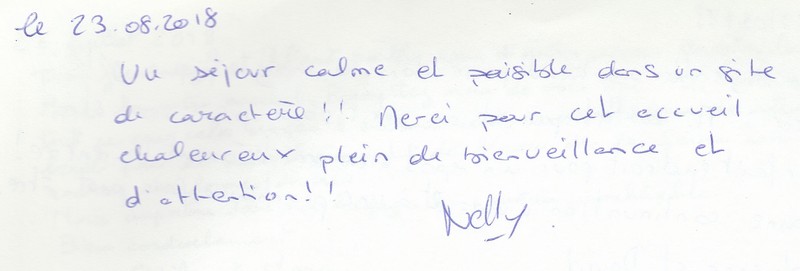 le 23.08.2018
Un séjour calme et paisible dans un gite
de caractère !! Merci pour cet accueil
chaleureux plein de bienveillance et
d'attention !!
Nelly.